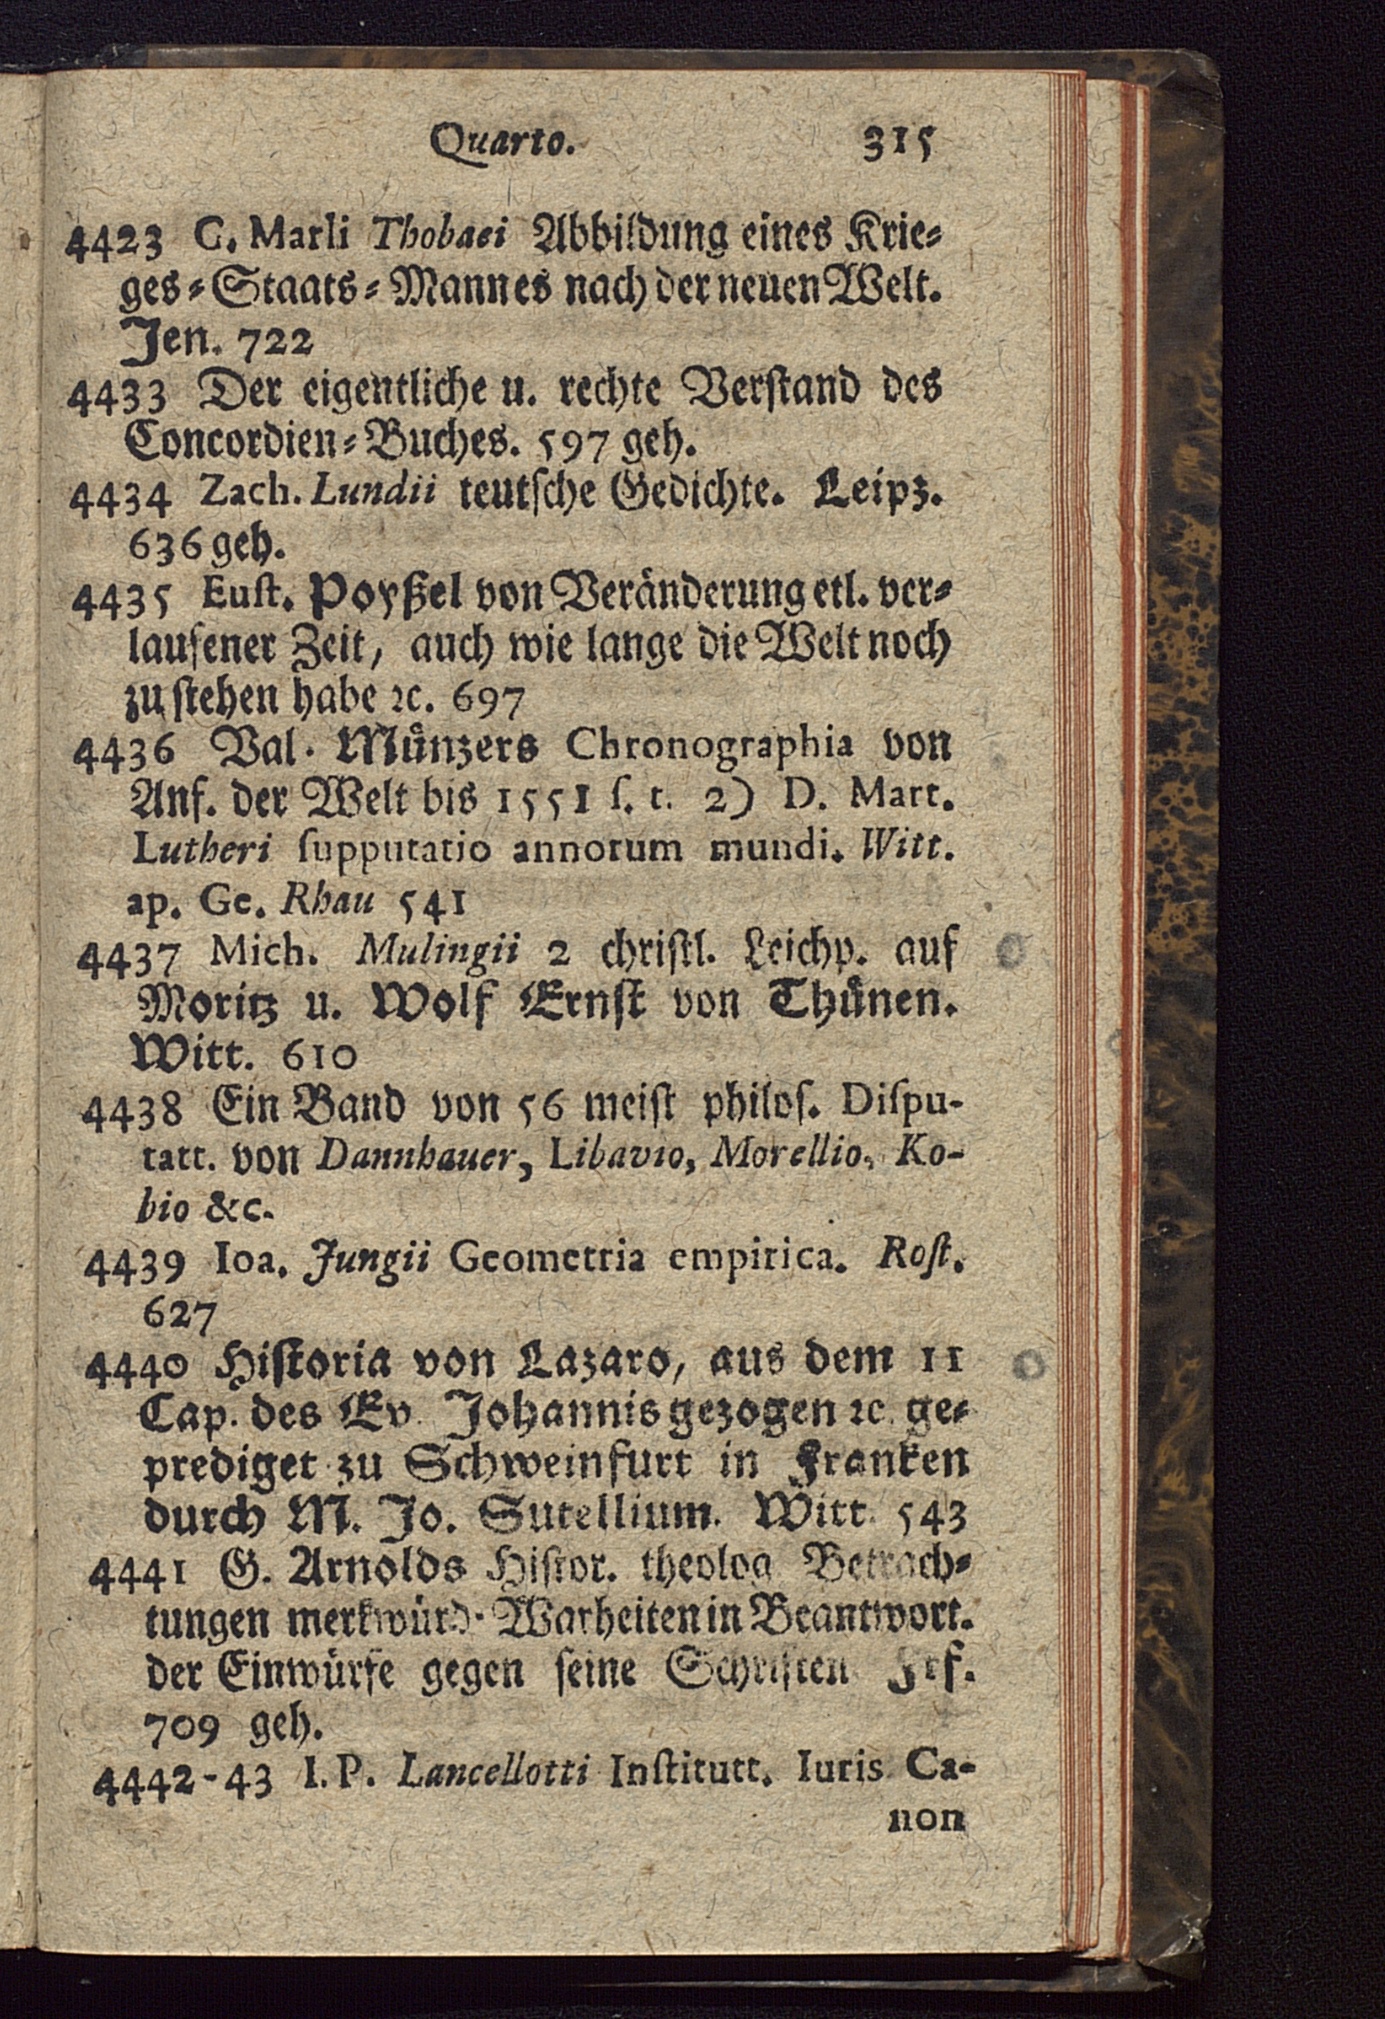 Quarto. 315
4423 C. Marli Thobaei Abbildung eines Krie⸗
ges⸗Staats⸗Mannes nach der neuen Welt.
Jen. 722
4433 Der eigentliche u. rechte Verstand des
Concordien⸗Buches. 597 geh.
4434 Zach. Lundii teutsche Gedichte. Leipz.
636 geh.
4435 Eust. Poyßel von Veränderung etl. ver⸗
laufener Zeit, auch wie lange die Welt noch
zu stehen habe ꝛc. 697
4436 Val. Münzers Chronographia von
Anf. der Welt bis 1551 ſ. t. 2) D. Mart.
Lutheri ſupputatio annorum mundi. Witt.
ap. Ge. Rhau 541
4437 Mich. Mulingii 2 christl. Leichp. auf
Moritz u. Wolf Ernst von Thünen.
Witt. 610
4438 Ein Band von 56 meist philos. Diſpu-
tatt. von Dannhauer, Libavio, Morellio, Ko-
bio &c.
4439 Ioa. Jungii Geometria empirica. Roſt.
627
4440 Historia von Lazaro, aus dem 11
Cap. des Ev. Johannis gezogen ꝛc. ge⸗
prediget zu Schweinfurt in Franken
durch M. Jo. Sutellium. Witt. 543
4441 G. Arnolds Histor. theolog Betrach⸗
tungen merkwürd. Warheiten in Beantwort.
der Einwürfe gegen seine Schriften Frf.
709 geh.
4442-43 I. P. Lancellotti Inſtitutt. Iuris Ca-
non